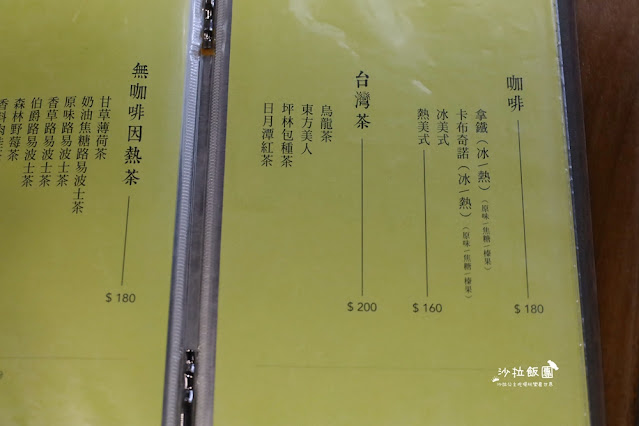 咖啡
$ 180
拿鐵（冰｜熱）（原味｜焦糖｜榛果）
卡布奇諾（冰｜熱）（原味｜焦糖｜榛果）
冰美式
熱美式
$ 160
台灣茶
$ 200
烏龍茶
東方美人
坪林包種茶
日月潭紅茶
無咖啡因熱茶
$ 180
甘草薄荷茶
奶油焦糖路易波士茶
原味路易波士茶
香草路易波士茶
伯爵路易波士茶
森林野莓茶
沙拉飯團